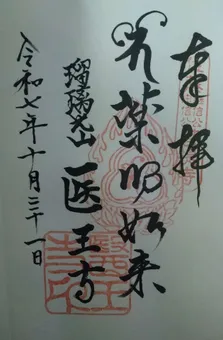 奉拝
薬师如来
瑠璃光山 医王寺
令和七年十月三十一日